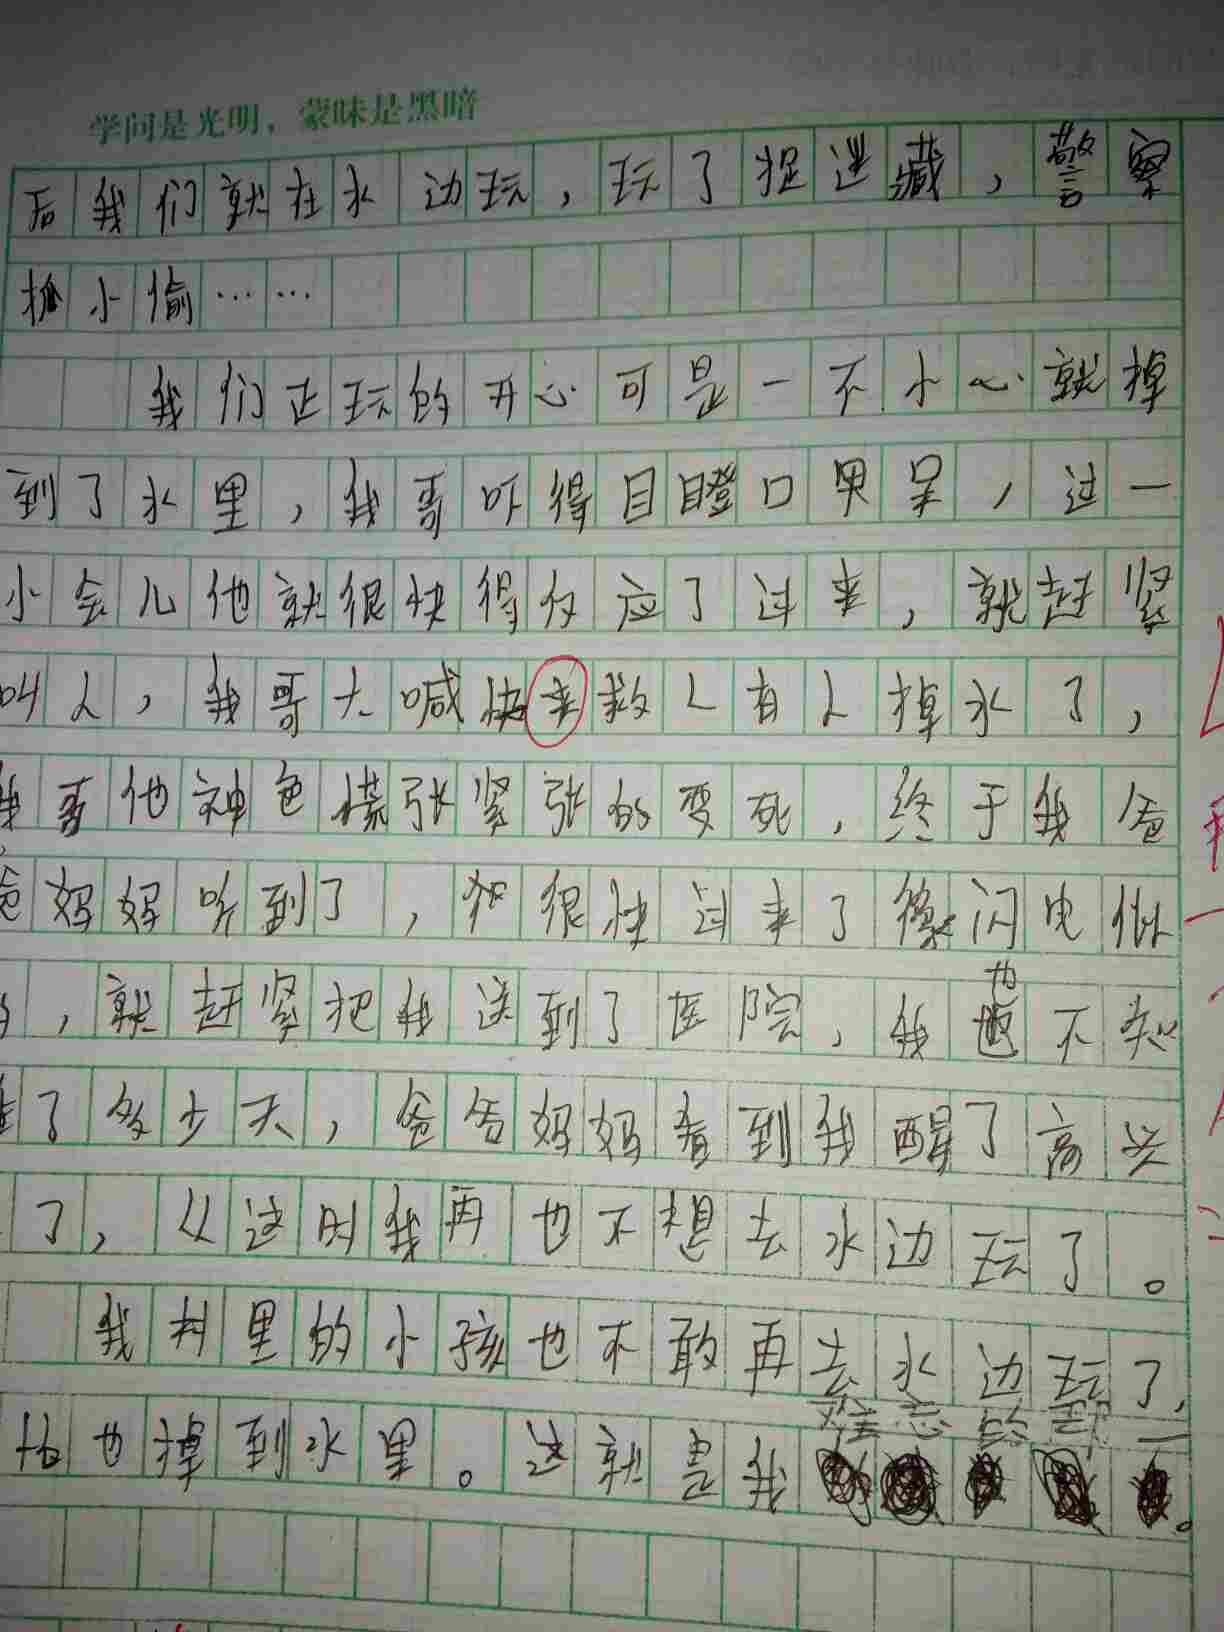 学问是光明，蒙昧是黑暗
后我们就在水边玩，玩了捉迷藏，警察
抓小偷……
我们正玩的开心可是一不小心就掉
到了水里，我哥吓得目瞪口呆，过一
小会儿他就很快得反应了过来，就赶紧
叫人，我哥大喊快来救人有人掉水了，
我哥他神色慌张紧张的要死，终于我爸
爸妈妈听到了，他很快过来了像闪电似
的，就赶紧把我送到了医院，我也不知
了多少天，爸爸妈妈看到我醒了高兴
了，从这时我再也不想去水边玩了。
我村里的小孩也不敢再去水边玩了，
怕也掉到水里。这就是我